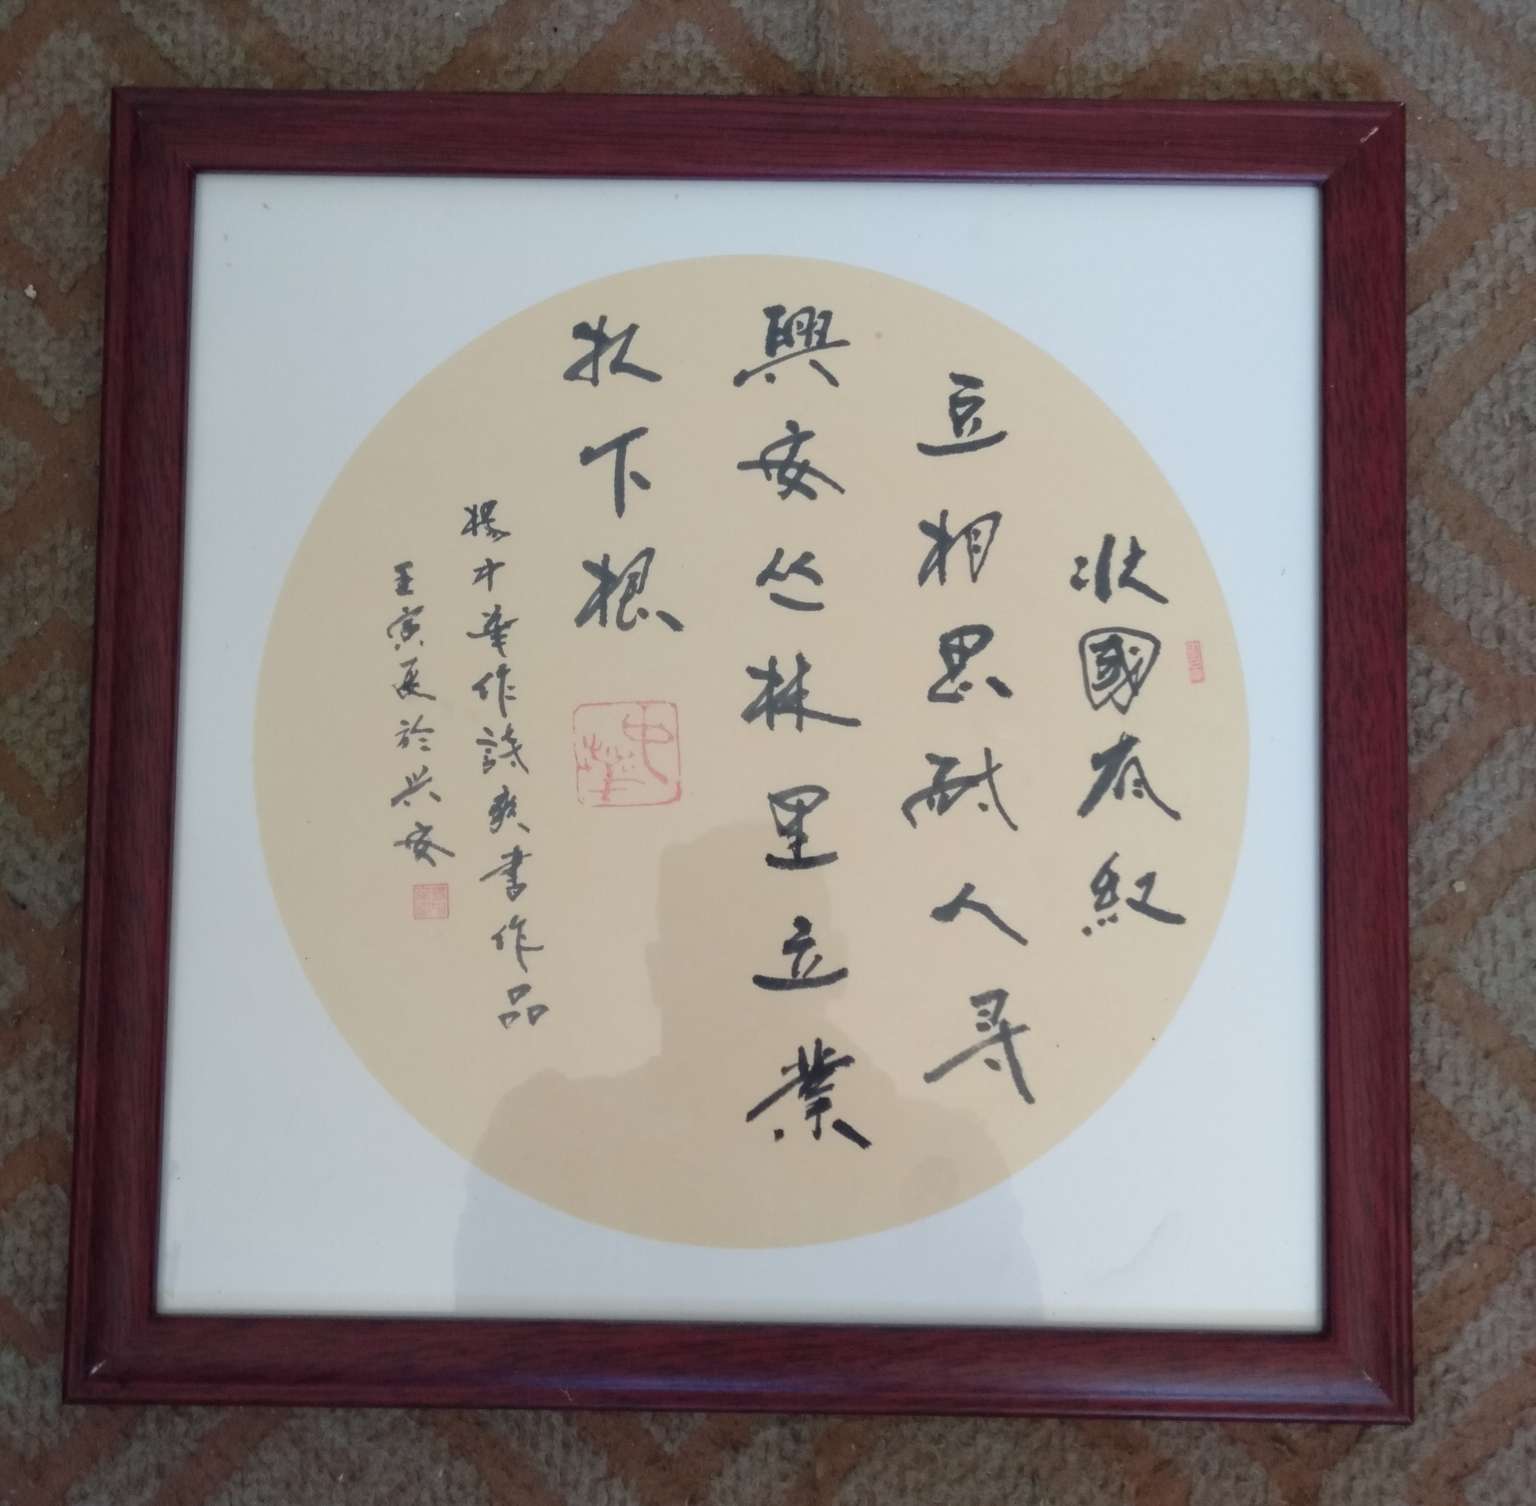 北國有紅
豆相思耐人寻
興安丛林里立業
下根
中華
楊中華作詩書作品
壬寅夏於兴安